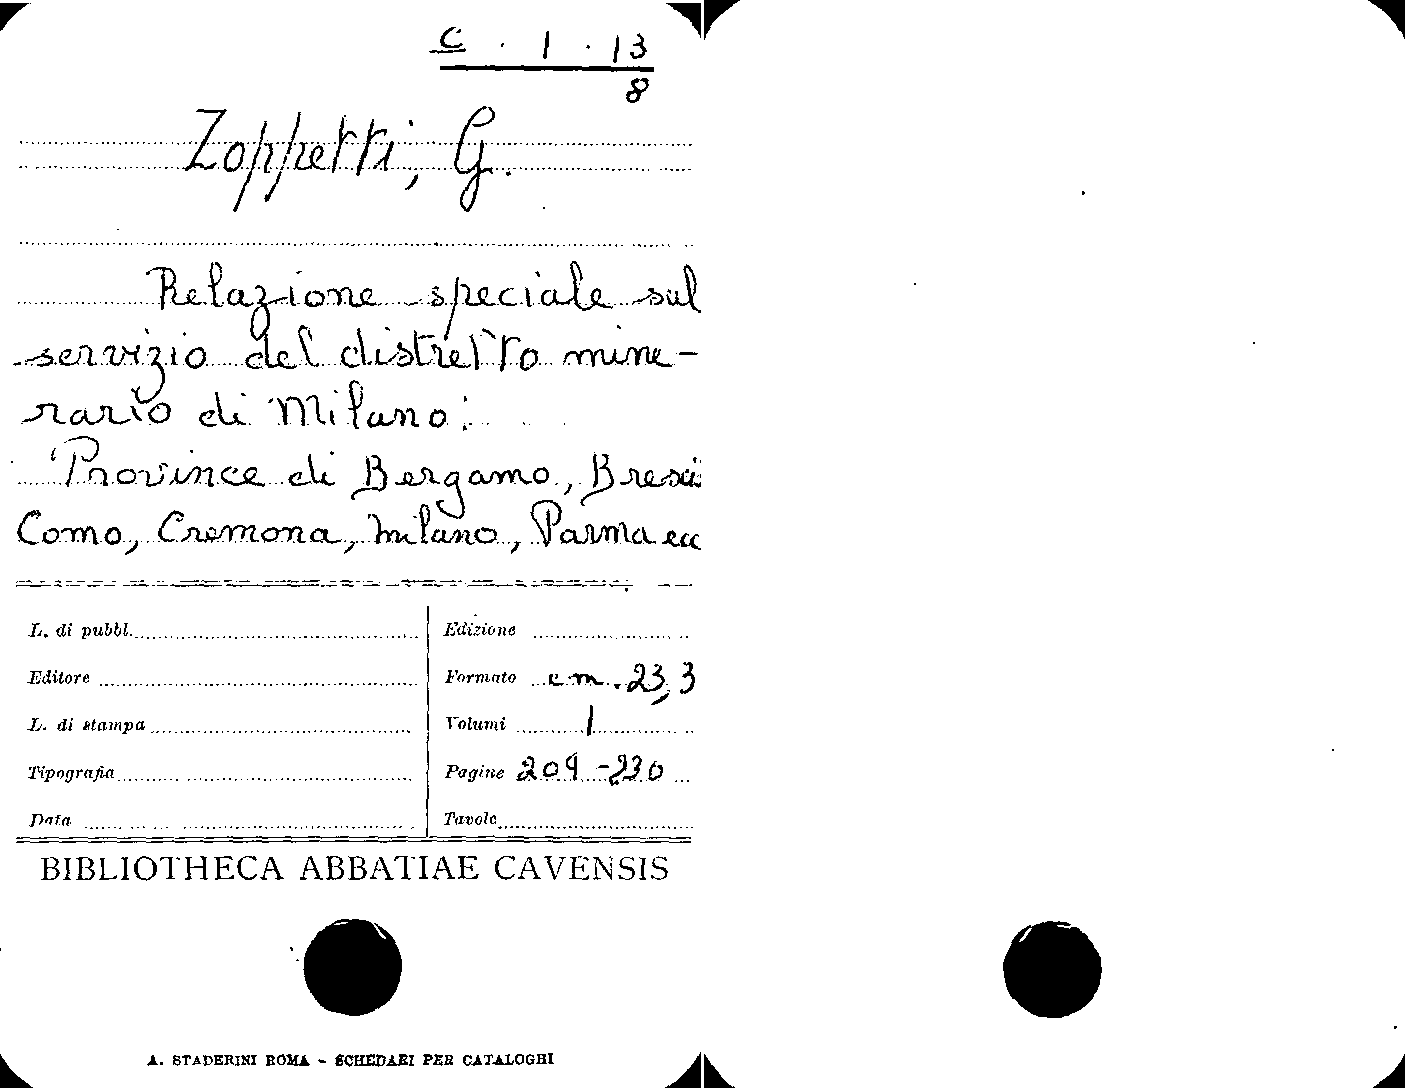 C . 1 . 13
8
Zoppetti, G.
Relazione speciale sul
servizio del distretto mine-
rario di Milano:
Province di Bergamo, Bresci
Como, Cremona, Milano, Parma ecc
L. di pubbl. Edizione
Editore Formato cm. 23,3
L. di stampa Volumi 1
Tipografia Pagine 209-230
Data Tavole
BIBLIOTHECA ABBATIAE CAVENSIS
A. STADERINI ROMA - SCHEDARI PER CATALOGHI